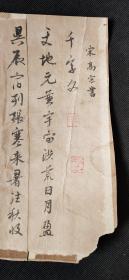 宋高宗書
千字文
天地元黄宇宙洪荒日月盈
昃辰宿列張寒来暑往秋收